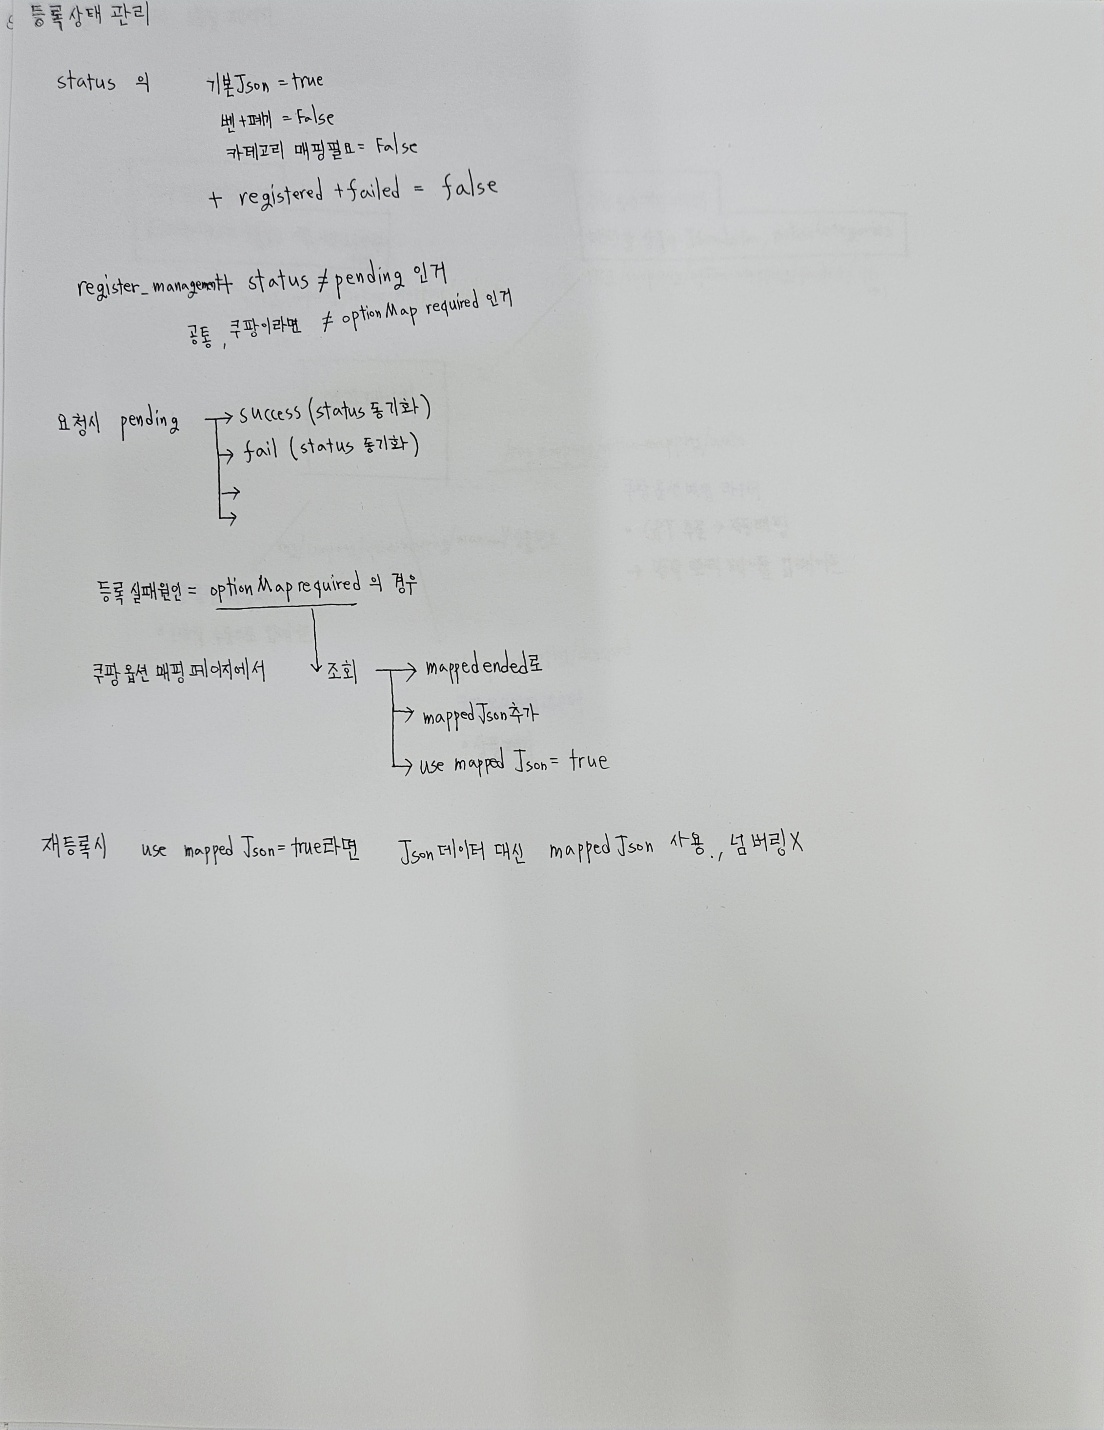 등록상태 관리
status 의 기본Json = true
벤+폐기 = False
카테고리 매핑필요 = False
+ registered + failed = false
register_management status ≠ pending 인거
공통, 쿠팡이라면 ≠ optionMap required 인거
요청시 pending → success (status 동기화)
→ fail (status 동기화)
→
→
등록 실패원인 = optionMap required 의 경우
쿠팡 옵션 매핑 페이지에서 조회 → mapped ended로
→ mapped Json 추가
→ use mapped Json = true
재등록시 use mapped Json = true라면 Json 데이터 대신 mapped Json 사용., 넘버링X